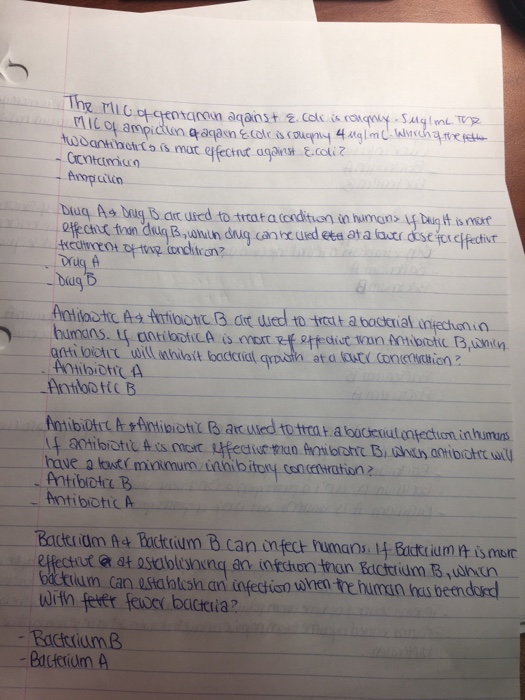 The MIC of gentamicin against E. coli is roughly .5 ug/mL. The
MIC of ampicillin against E. coli is roughly 4 ug/mL. Which of the
two antibiotics is most effective against E. coli?
- Gentamicin
- Ampicillin
Drug A & Drug B are used to treat a condition in humans. If Drug A is more
effective than drug B, which drug can be used at a lower dose for effective
treatment of the condition?
- Drug A
- Drug B
Antibiotic A & Antibiotic B are used to treat a bacterial infection in
humans. If antibiotic A is more effective than Antibiotic B, which
antibiotic will inhibit bacterial growth at a lower concentration?
- Antibiotic A
- Antibiotic B
Antibiotic A & Antibiotic B are used to treat a bacterial infection in humans
If antibiotic A is more effective than Antibiotic B, which antibiotic will
have a lower minimum inhibitory concentration?
- Antibiotic B
- Antibiotic A
Bacterium A & Bacterium B can infect humans. If Bacterium A is more
effective at establishing an infection than Bacterium B, which
bacterium can establish an infection when the human has been dosed
with fewer bacteria?
- Bacterium B
- Bacterium A